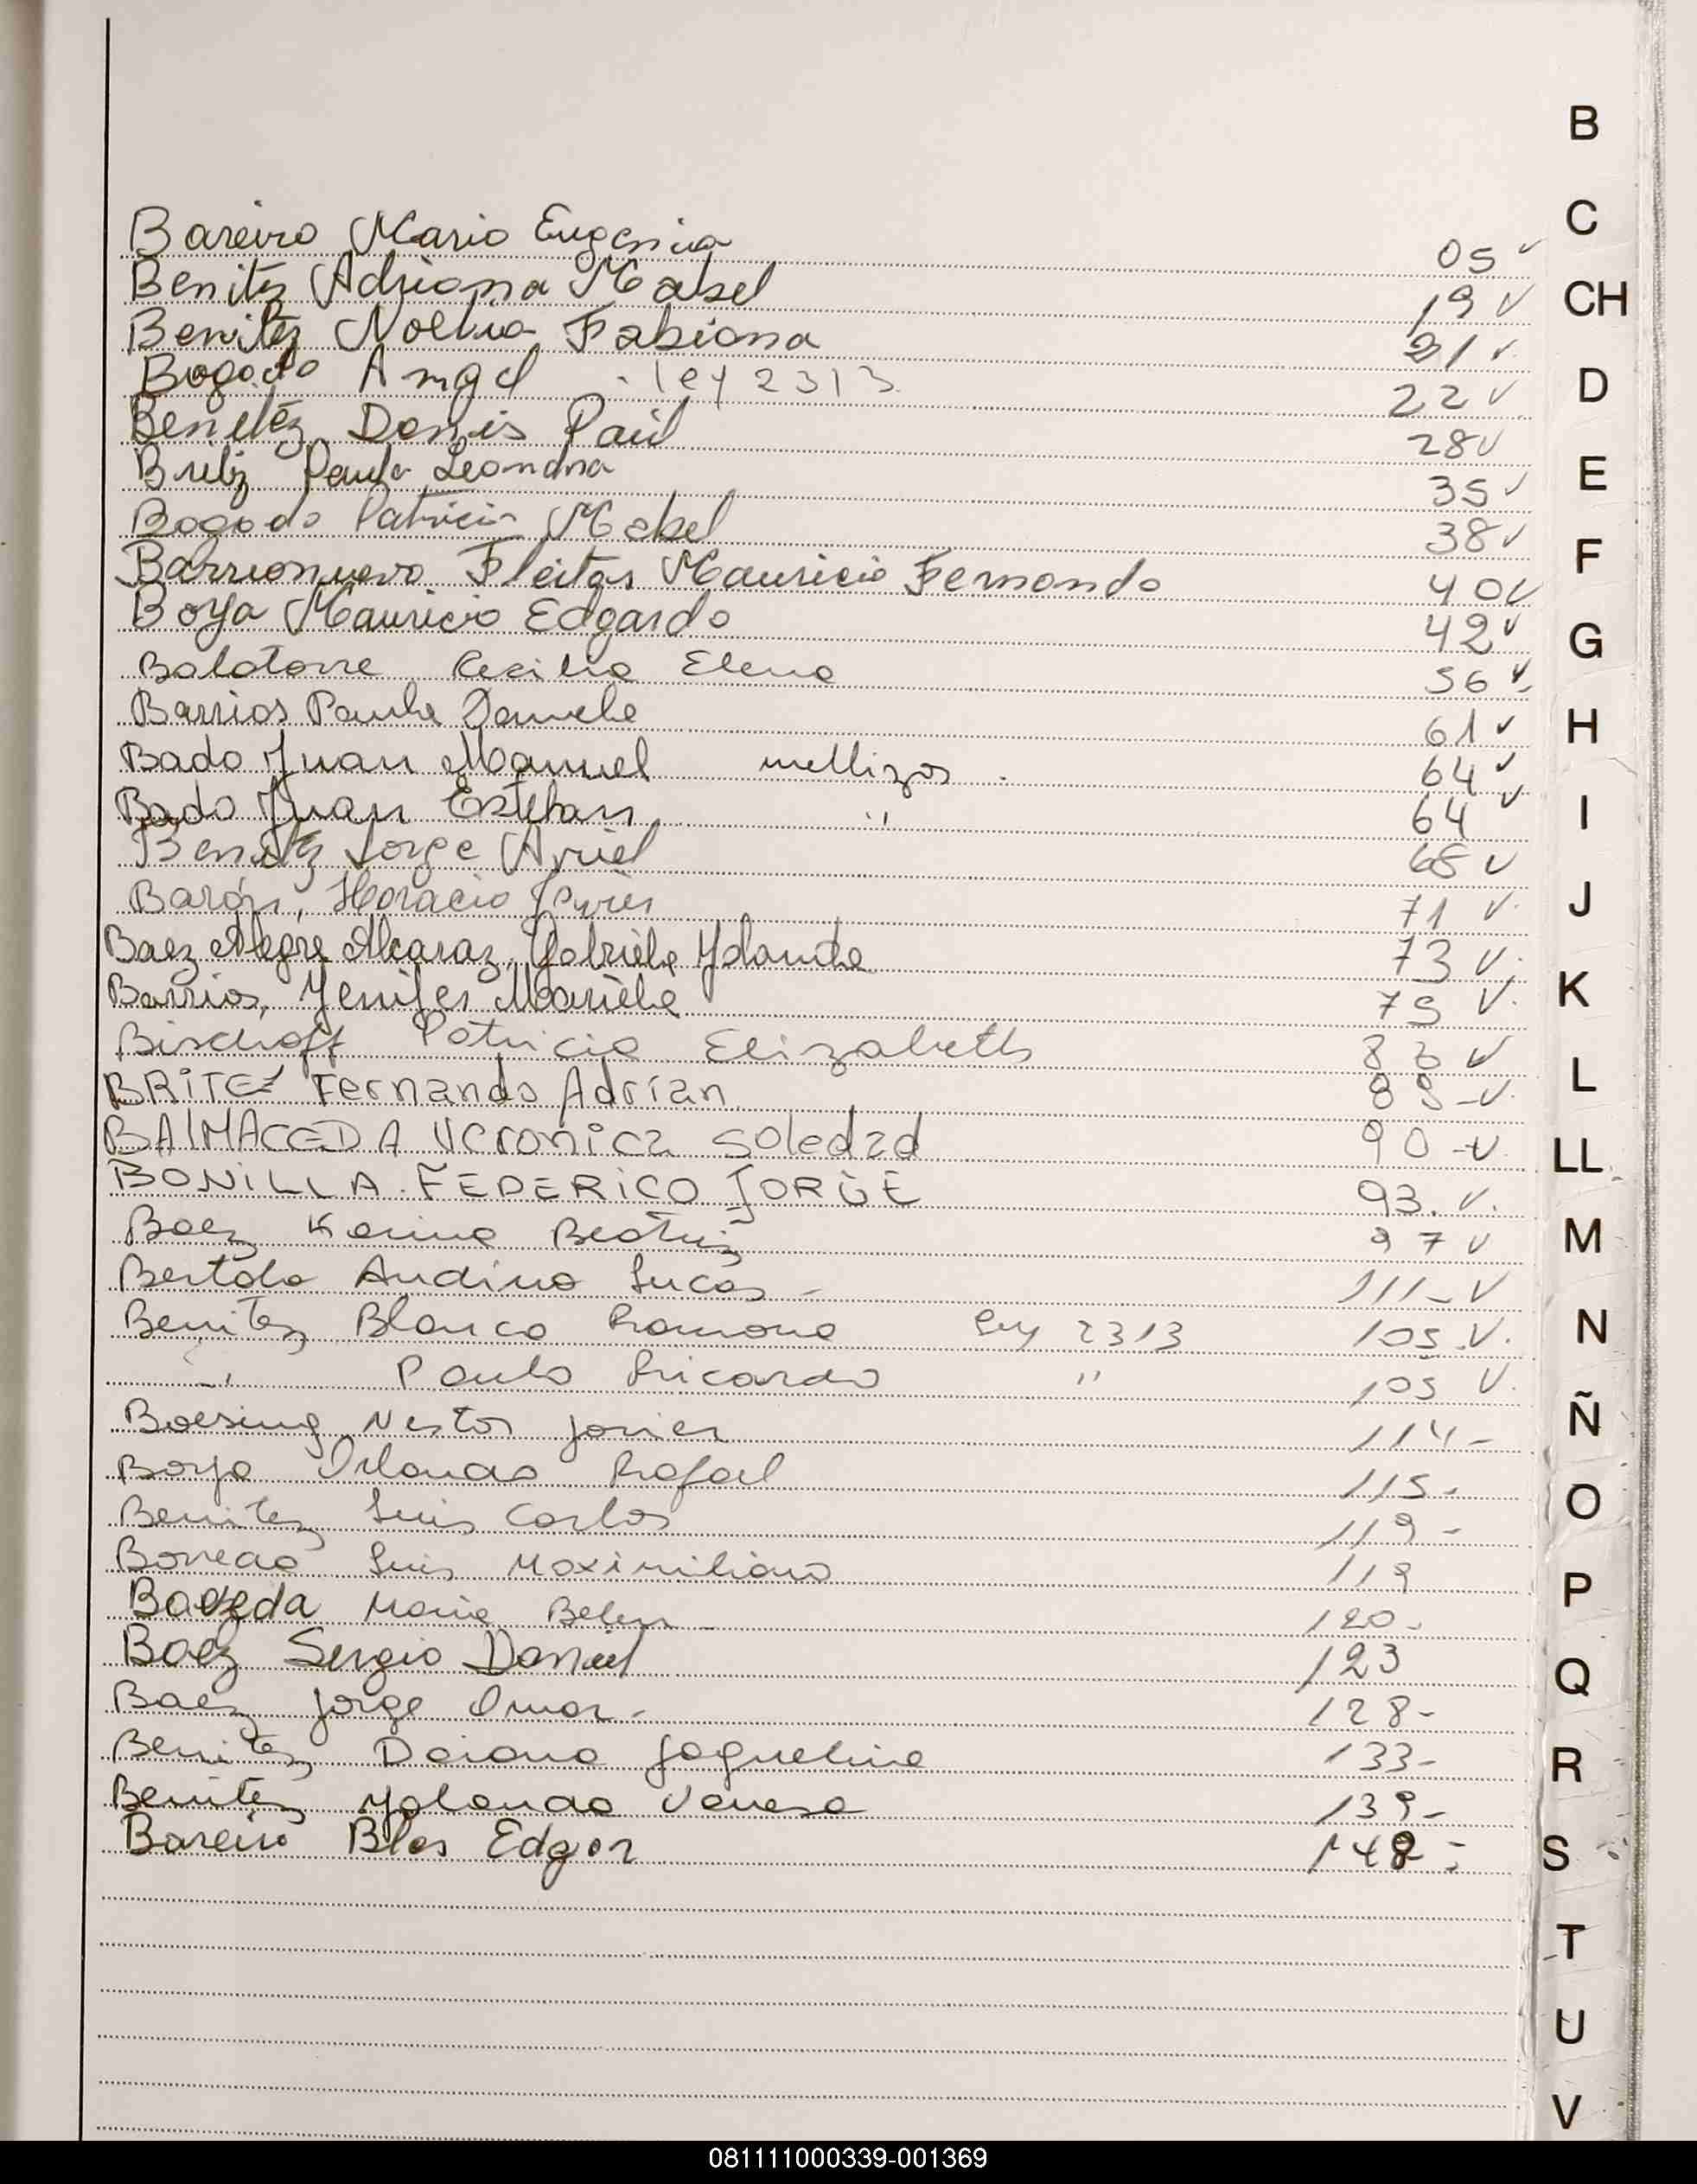 B
C
CH
D
E
F
G
H
I
J
K
L
LL
M
N
Ñ
O
P
Q
R
S
T
U
V
Bareiro Maria Eugenia 05 ✓
Benitez Adriana Mabel 19 ✓
Benitez Noelia Fabiana 21 ✓
Bogado Angel - ley 2313 22 ✓
Benitéz Denis Paúl 28 ✓
Britez Paula Leandra 35 ✓
Bogado Patricia Mabel 38 ✓
Barrionuevo Fleitas Mauricio Fernando 40 ✓
Boya Mauricio Edgardo 42 ✓
Balatorre Cecilia Elena 56 ✓
Barrios Paula Daniela 61 ✓
Bado Juan Manuel mellizos 64 ✓
Bado Juan Esteban " 64 ✓
Benitez Jorge Ariel 68 ✓
Barón, Horacio Javier 71 ✓
Baez Alegre Alcaraz, Gabriela Yolanda 73 ✓
Barrios, Yenifer Mariela 75 ✓
Bischoff Patricia Elizabeth 83 ✓
BRITEZ Fernando Adrían 89 - ✓
BALMACEDA Veronica Soledad 90 - ✓
BONILLA FEDERICO JORGE 93. ✓
Baez Karina Beatriz 97 ✓
Bertolo Andino Lucas - 111 - ✓
Benitez Blanca Ramona ley 2313 105 ✓
" Paulo Ricardo " 105 ✓
Boesing Nestor Javier 114 -
Boya Orlando Rafael 115 -
Benitez Luis Carlos 119 -
Luis Maximiliano 119
Maria Belen 120 -
Baez Sergio Daniel 123
Baez Jorge Omar - 128 -
Benitez Daiana Jaqueline 133 -
Benitez Yolanda Vanesa 139 -
Bareiro Blas Edgar 148 -
081111000339-001369